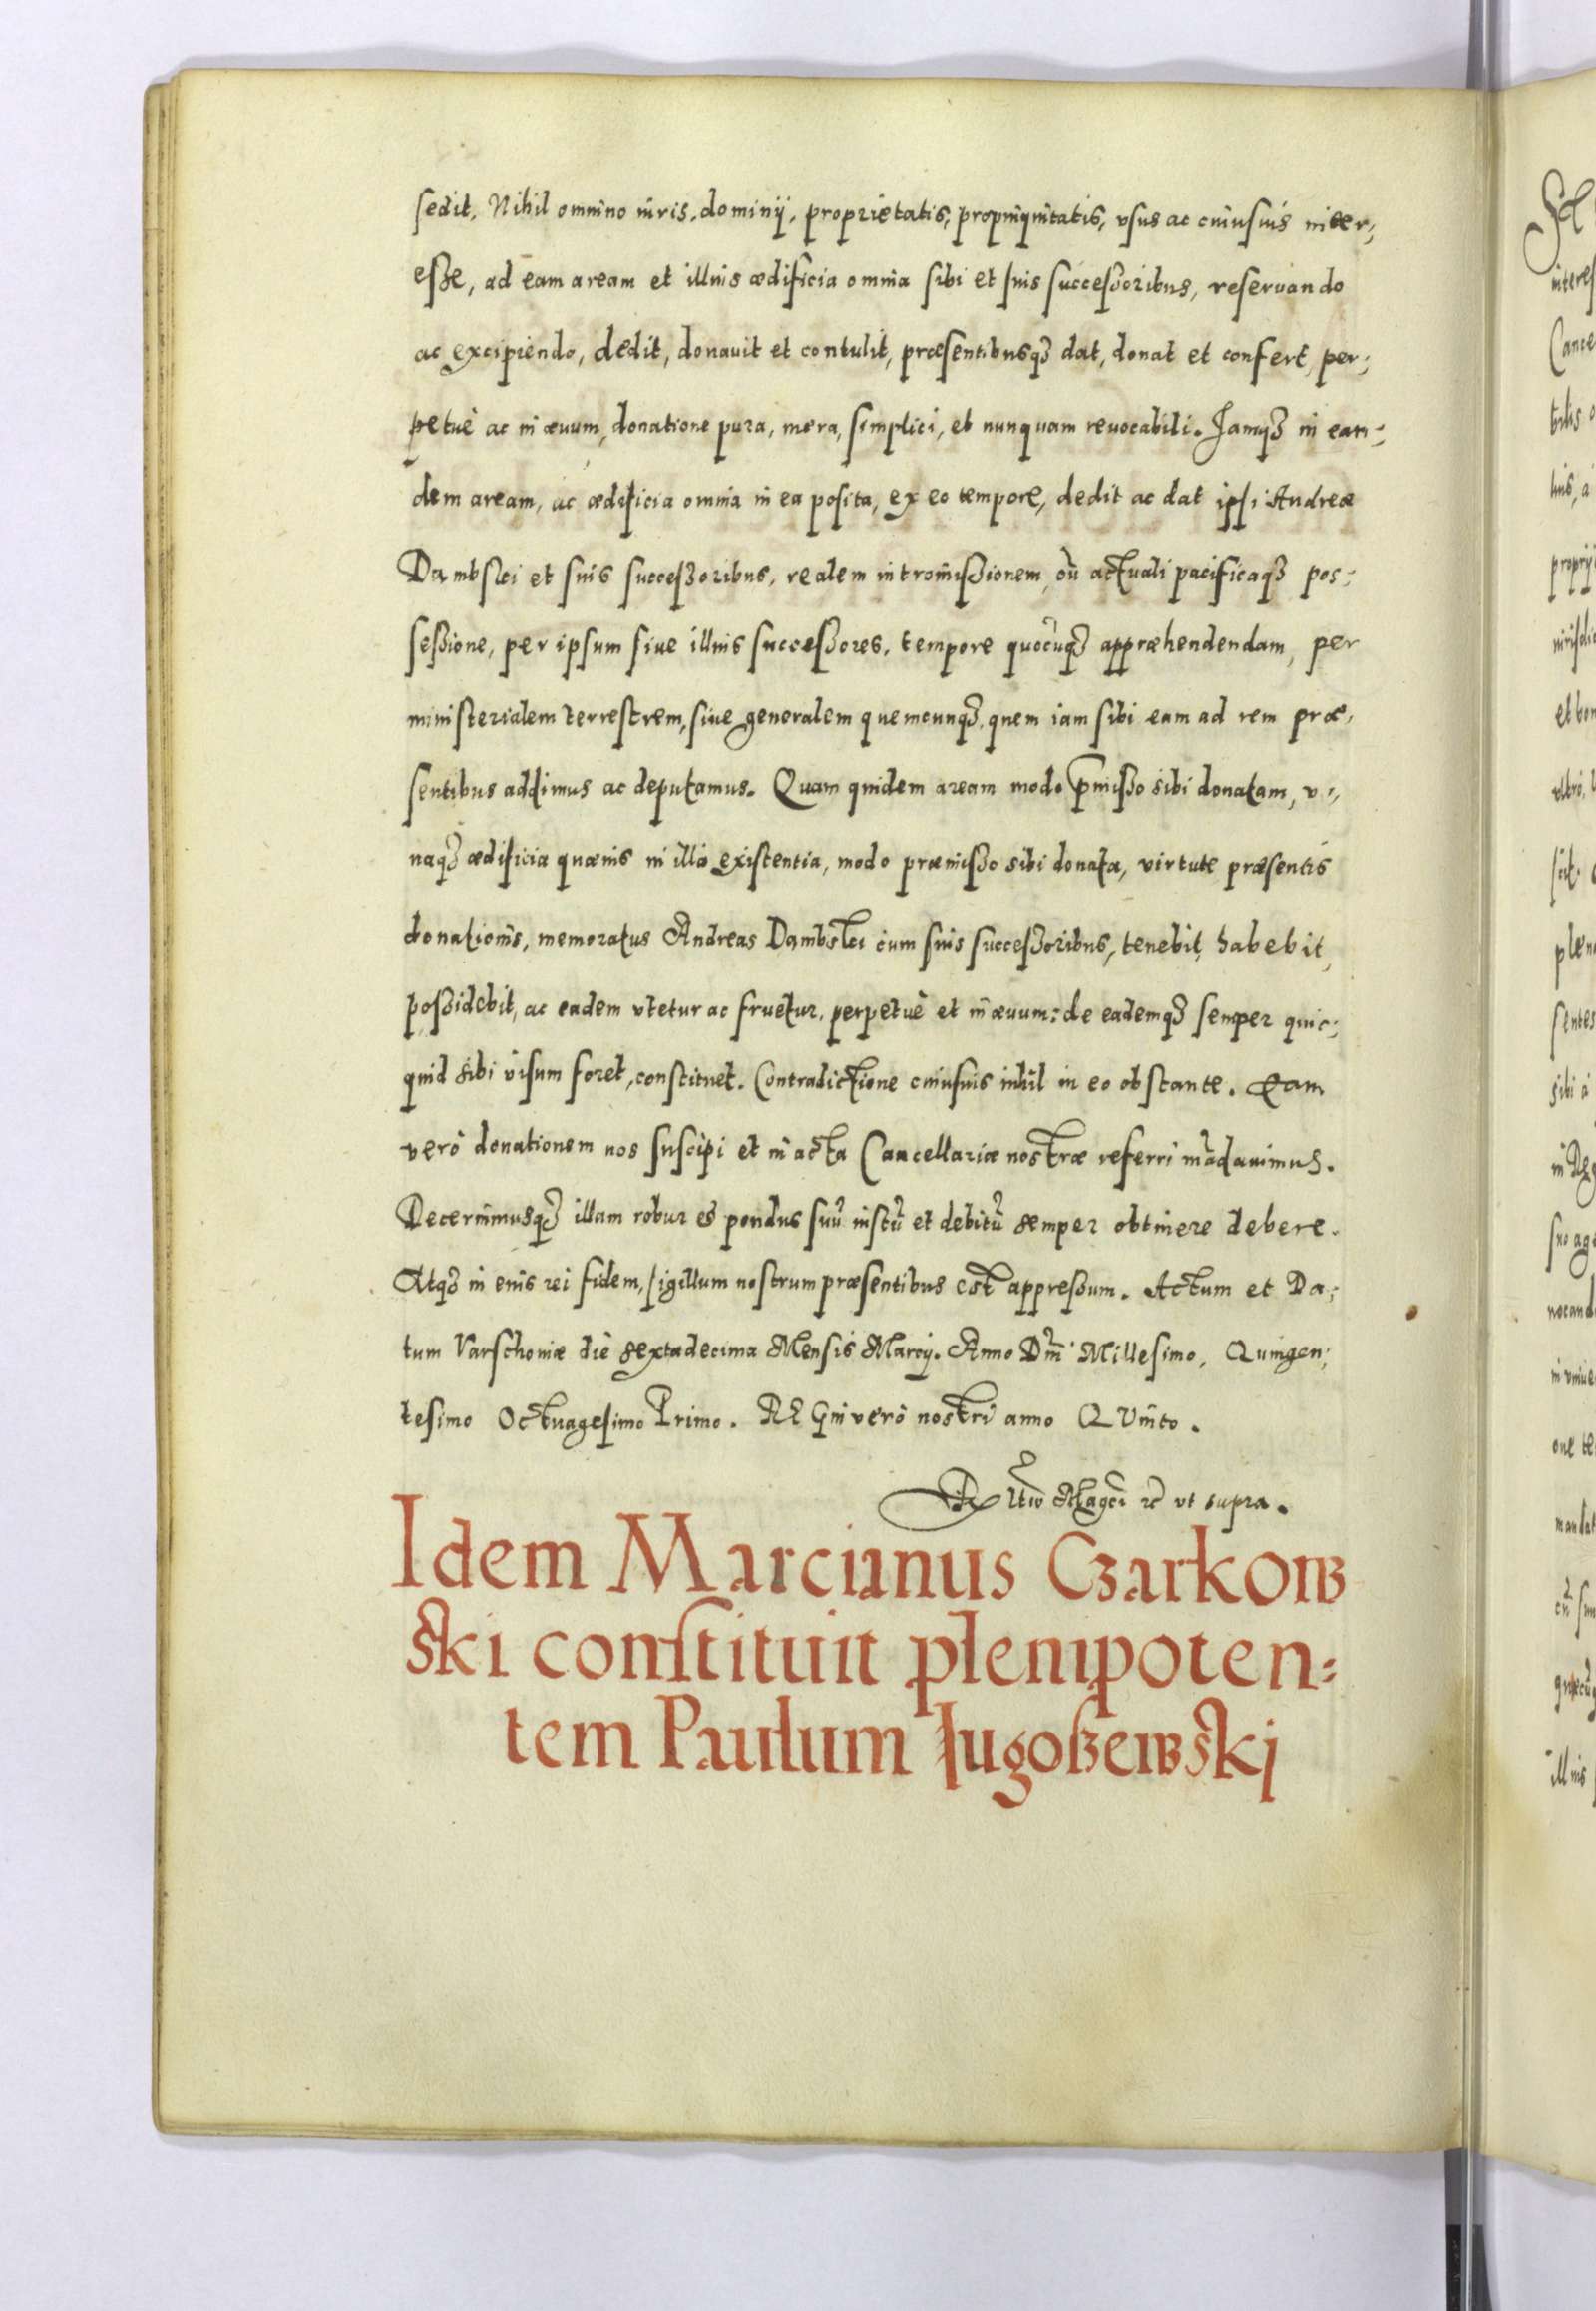 sedit, Nihil omnino iuris, dominij, proprietatis, propinquitatis, vsus ac cuiusuis inter,
esse, ad eam aream et illius ædificia omnia sibi et suis successoribus, reseruando
ac excipiendo, dedit, donauit et contulit, præsentibusq3 dat, donat et confert, per,
petuè ac in æuum, donatione pura, mera, simplici, et nunquam reuocabili. Jamq3 in ean,
dem aream, ac ædificia omnia in ea posita, ex eo tempore, dedit ac dat ipsi Andreæ
Dambski et suis successoribus, realem intromissionem, cũ actuali pacificaq3 pos,
sessione, per ipsum siue illius successores, tempore quocũq3 appræhendendam, per
ministerialem terrestrem, siue generalem quemcunq3, quem iam sibi eam ad rem præ,
sentibus addimus ac deputamus. Quam quidem aream modo p̃misso sibi donatam, v,
naq3 ædificia quæuis in illa existentia, modo præmisso sibi donata, virtute præsentis
donationis, memoratus Andreas Dambski cum suis successoribus, tenebit, habebit,
possidebit, ac eadem vtetur ac fruetur, perpetuè et in æuum: de eademq3 semper quic,
quid sibi visum foret, constituet. Contradictione cuiusuis nihil in eo obstante. Eam
verò donationem nos suscipi et in acta Cancellariæ nostræ referri mãdauimus.
Decernimusq3 illam robur et pondus suũ iustũ et debitũ semper obtinere debere.
Atq3 in euis rei fidem, sigillum nostrum præsentibus est appressum. Actum et Da,
tum Varschouiæ die sextadecima Mensis Marcij. Anno Dñi Millesimo, Quingen,
tesimo Octuagesimo Primo. REGni verò nostri anno QVinto.
Rltio Magci ꝛc vt supra.
Idem Marcianus Czarkow
ski constituit plenipoten:
tem Paulum Iugoszewskj